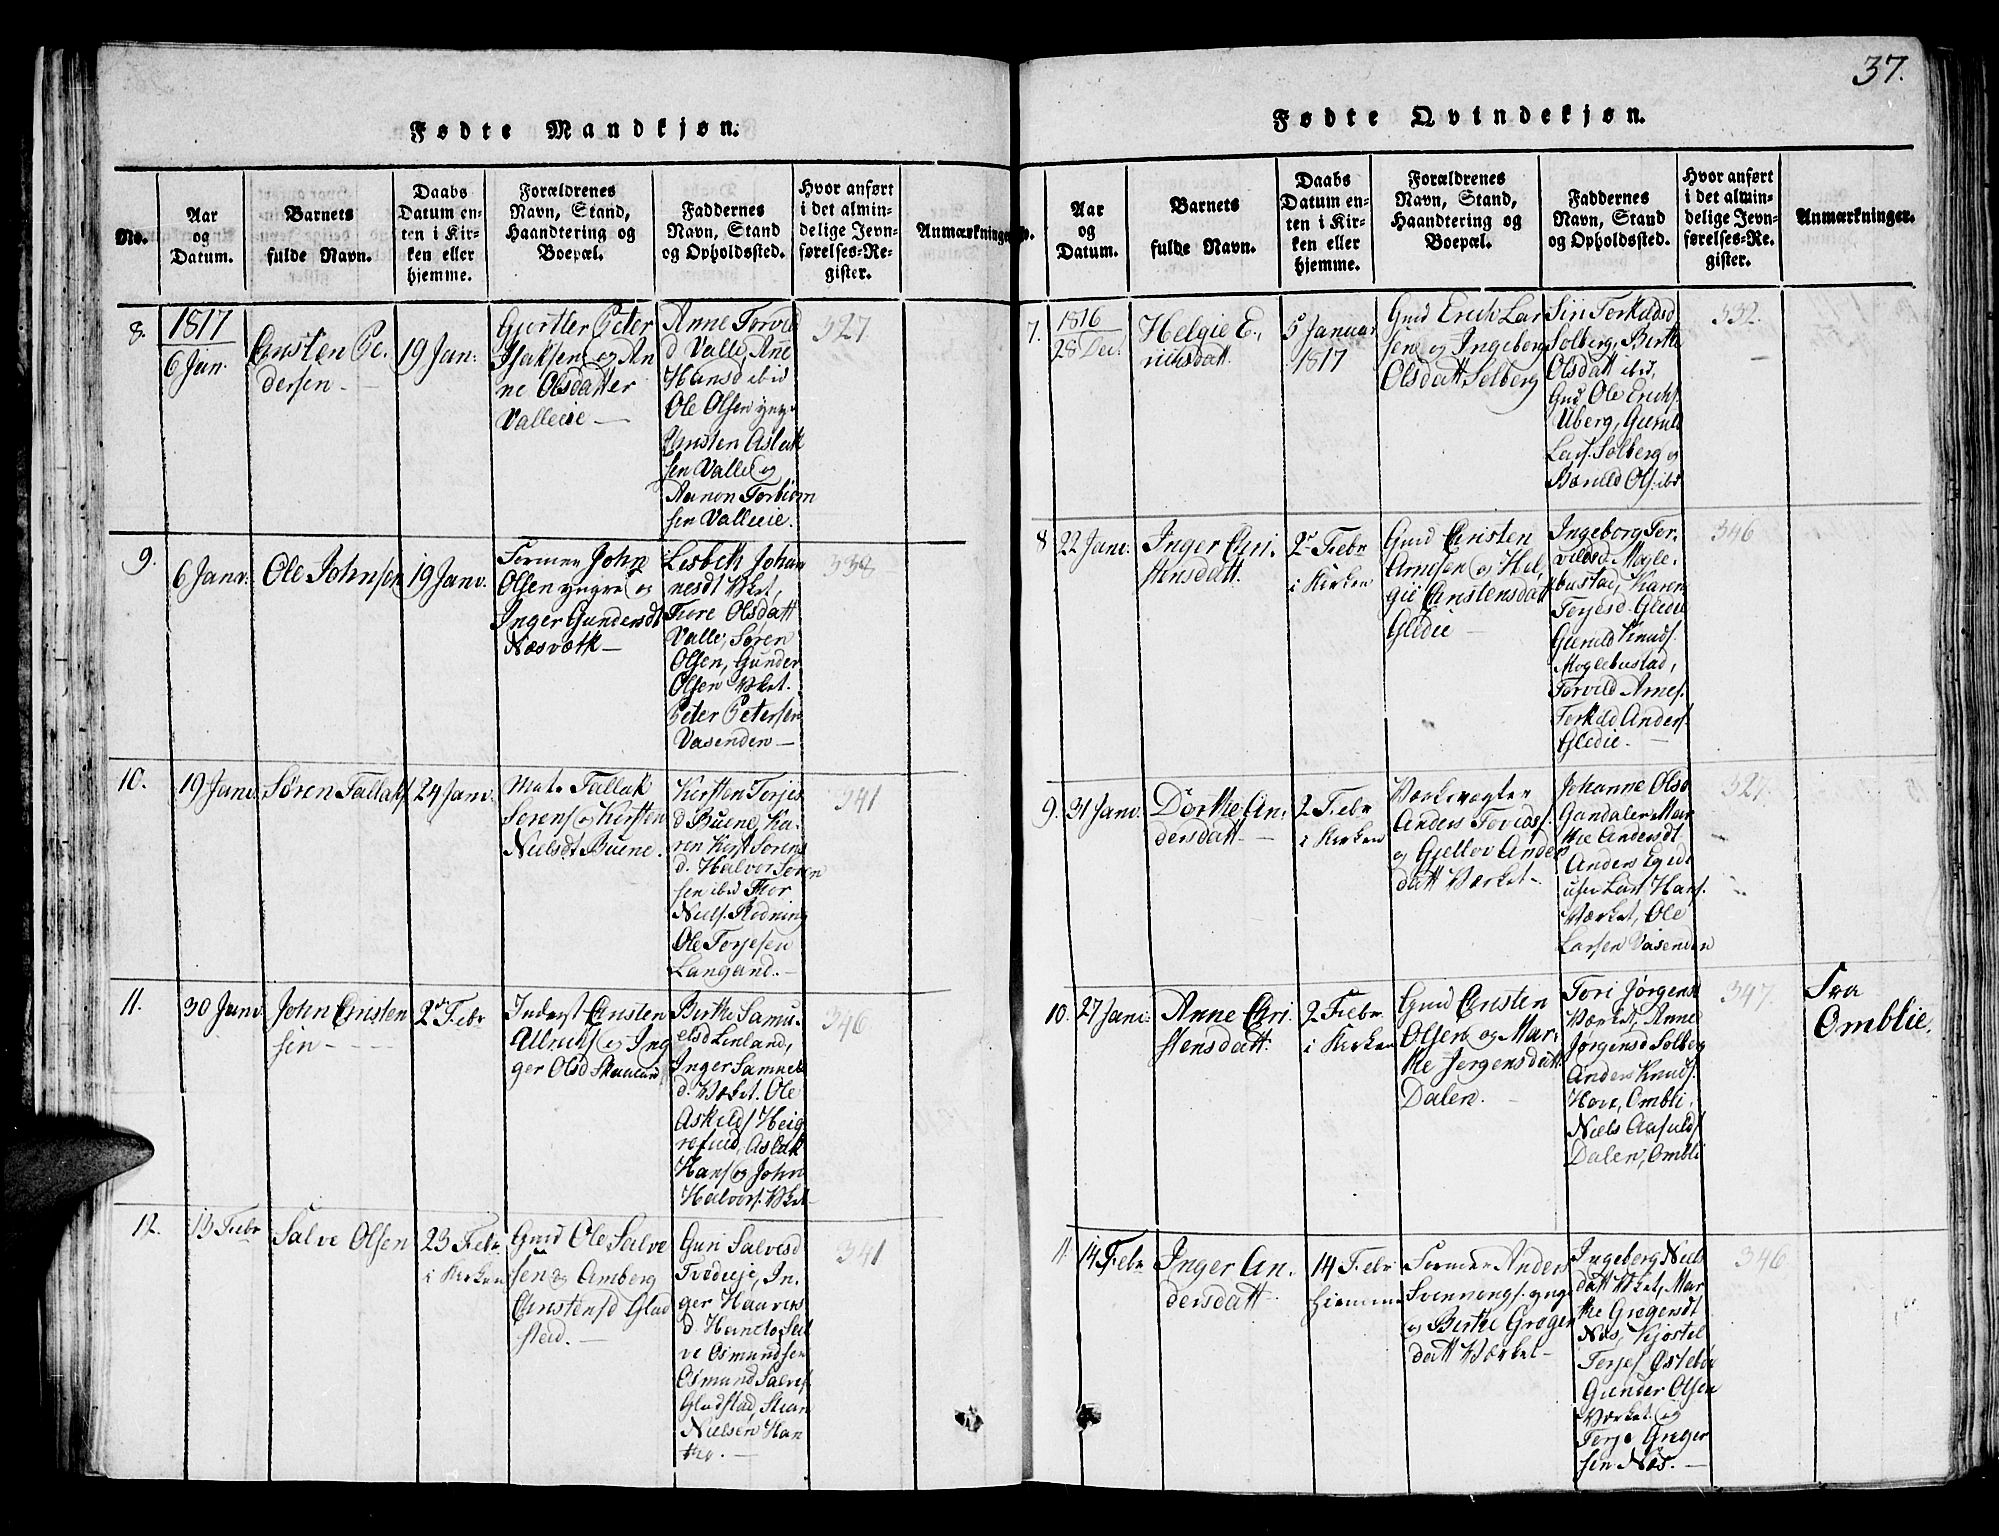 37.
Fødte Mandkjøn.
No.
Aar
og
Datum.
Barnets
fulde Navn.
Daabs
Datum en-
ten i Kir-
ken eller
hjemme.
Forældrenes
Navn, Stand,
Haandtering og
Boepæl.
Faddernes
Navn, Stand
og Opholdssted.
Hvor anført
i det almin-
delige Jevn-
førelses-Re-
gister.
Anmærkninger.
8.
1817
6 Jan.
Cristen Pe-
dersen -
19 Jan:
Gjertler Peter
Isaksen og An
ne Olsdatter
Valleeie -
Anne Torvild
d Valle, Ane
Hansd ibid
Ole Olsen yngr
Cristen Aslak
sen Valle og
Aanon Torbiørn
sen Valleeie.
327
9.
6 Janv:
Ole Johnsen
19 Janv.
Former John
Olsen yngre og
Inger Gundersdt
Næsværk -
Lisbeth Johan
nesdt Vket,
Tore Olsdatt
Valle, Søren
Olsen, Gunder
Olsen Vket.
Peter Petersen
Vasenden -
338
10.
19 Janv.
Søren Tallaks.
24 Janv.
Mats Tallak
Sørens og Kirsten
Nielsdt Buene.
Kirsten Torjes
d Buene, Ka-
ren Kirst. Sørens
d. Halvor Søren
sen ibd Tor
Niels. Rødning
Ole Torjesen
Langand. -
341
11.
30 Janv
John Cristen
sen -
2 Febr
Inderst Cristen
Allrichs og Ing
ger Olsd Skaaland
Birthe Samu-
elsd Linland,
Inger Samuels
d. Vket. Ole
Askilds Heig
refied, Aslak
Hans og John
Halvors. Vket -
346
12.
13 Febr
Salve Olsen
23 Febr.
i Kirken
Gmd Ole Salve
sen og Amberg
Cristensd Glad
sted. -
Guri Salvesd
Tvedeeje, In-
ger Haavers
d. Hantho Sal
ve Osmundsen
Osmund Salves
Gladstad Stian
Nielsen Han
tho. -
341
Fødte Qvindekjøn.
Aar
og
Datum.
Barnets
fulde Navn.
Daabs
Datum en-
ten i Kir-
ken eller
hjemme.
Forældrenes
Navn, Stand,
Haandtering og
Boepæl.
Faddernes
Navn, Stand
og Opholdssted.
Hvor anført
i det almin-
delige Jevn-
førelses-Re-
gister.
Anmærkninger.
7.
1816
28 Dec.
Helgie E-
richsdatt.
5 Januar
1817
Gmd Erich Lar
sen og Ingeborg
Olsdatt Solberg
Siri Torkildsd
Solberg, Berthe
Olsdatt ibd,
Gmd Ole Erichs.
Uberg, Gierulf
Lars. Solberg og
Bærulf Ols. ibd
332.
8
22 Janv.
Inger Cri-
stensdatt.
2 Febr
i Kirken
Gmd Cristen
Arnesen og Hel-
gie Cristensdatt
Gledie -
Ingeborg Tor-
vildsd Mogle-
bustad, Karen
Terjesd Gledie
Gierulf Knuds.
Moglebustad,
Torvild Arnes.
Torkild Anders.
Gledie. -
346
9.
31 Janv.
Dorthe An-
dersdatt. -
2 Febr
i Kirken
Værksvagten
Anders Tovias.
og Gjellov Anders
datt Værket -
Johanne Olsd
Gandalen Mar
the Andersdt
Anders Egede
Lars Hans.
Værket, Ole
Larsen Vasenden
327.
10.
27 Janv:
Anne Cri-
stensdatt.
2 Febr.
i Kirken
Gmd Cristen
Olsen og Mar-
the Jørgensdatt
Dalen. -
Tori Jørgensd
Værket, Anne
Jørgensd Solberg
Anders Knuds.
Hove, Ombli.
Niels Aasulds.
Dalen, Ombli
347.
Fra
Omblie.
11.
14 Febr
Inger An-
dersdatt.
14 Febr
hiemme
Former Anders
Svennungs. yngr
og Birthe Greger
datt Værket -
Ingeborg Niels
datt Vket, Mar
the Gregersdt
Næs, Kjøstel
Terjes Østebøe
Gunder Olsen
Værket og
Terje Greger
sen Næs. -
346